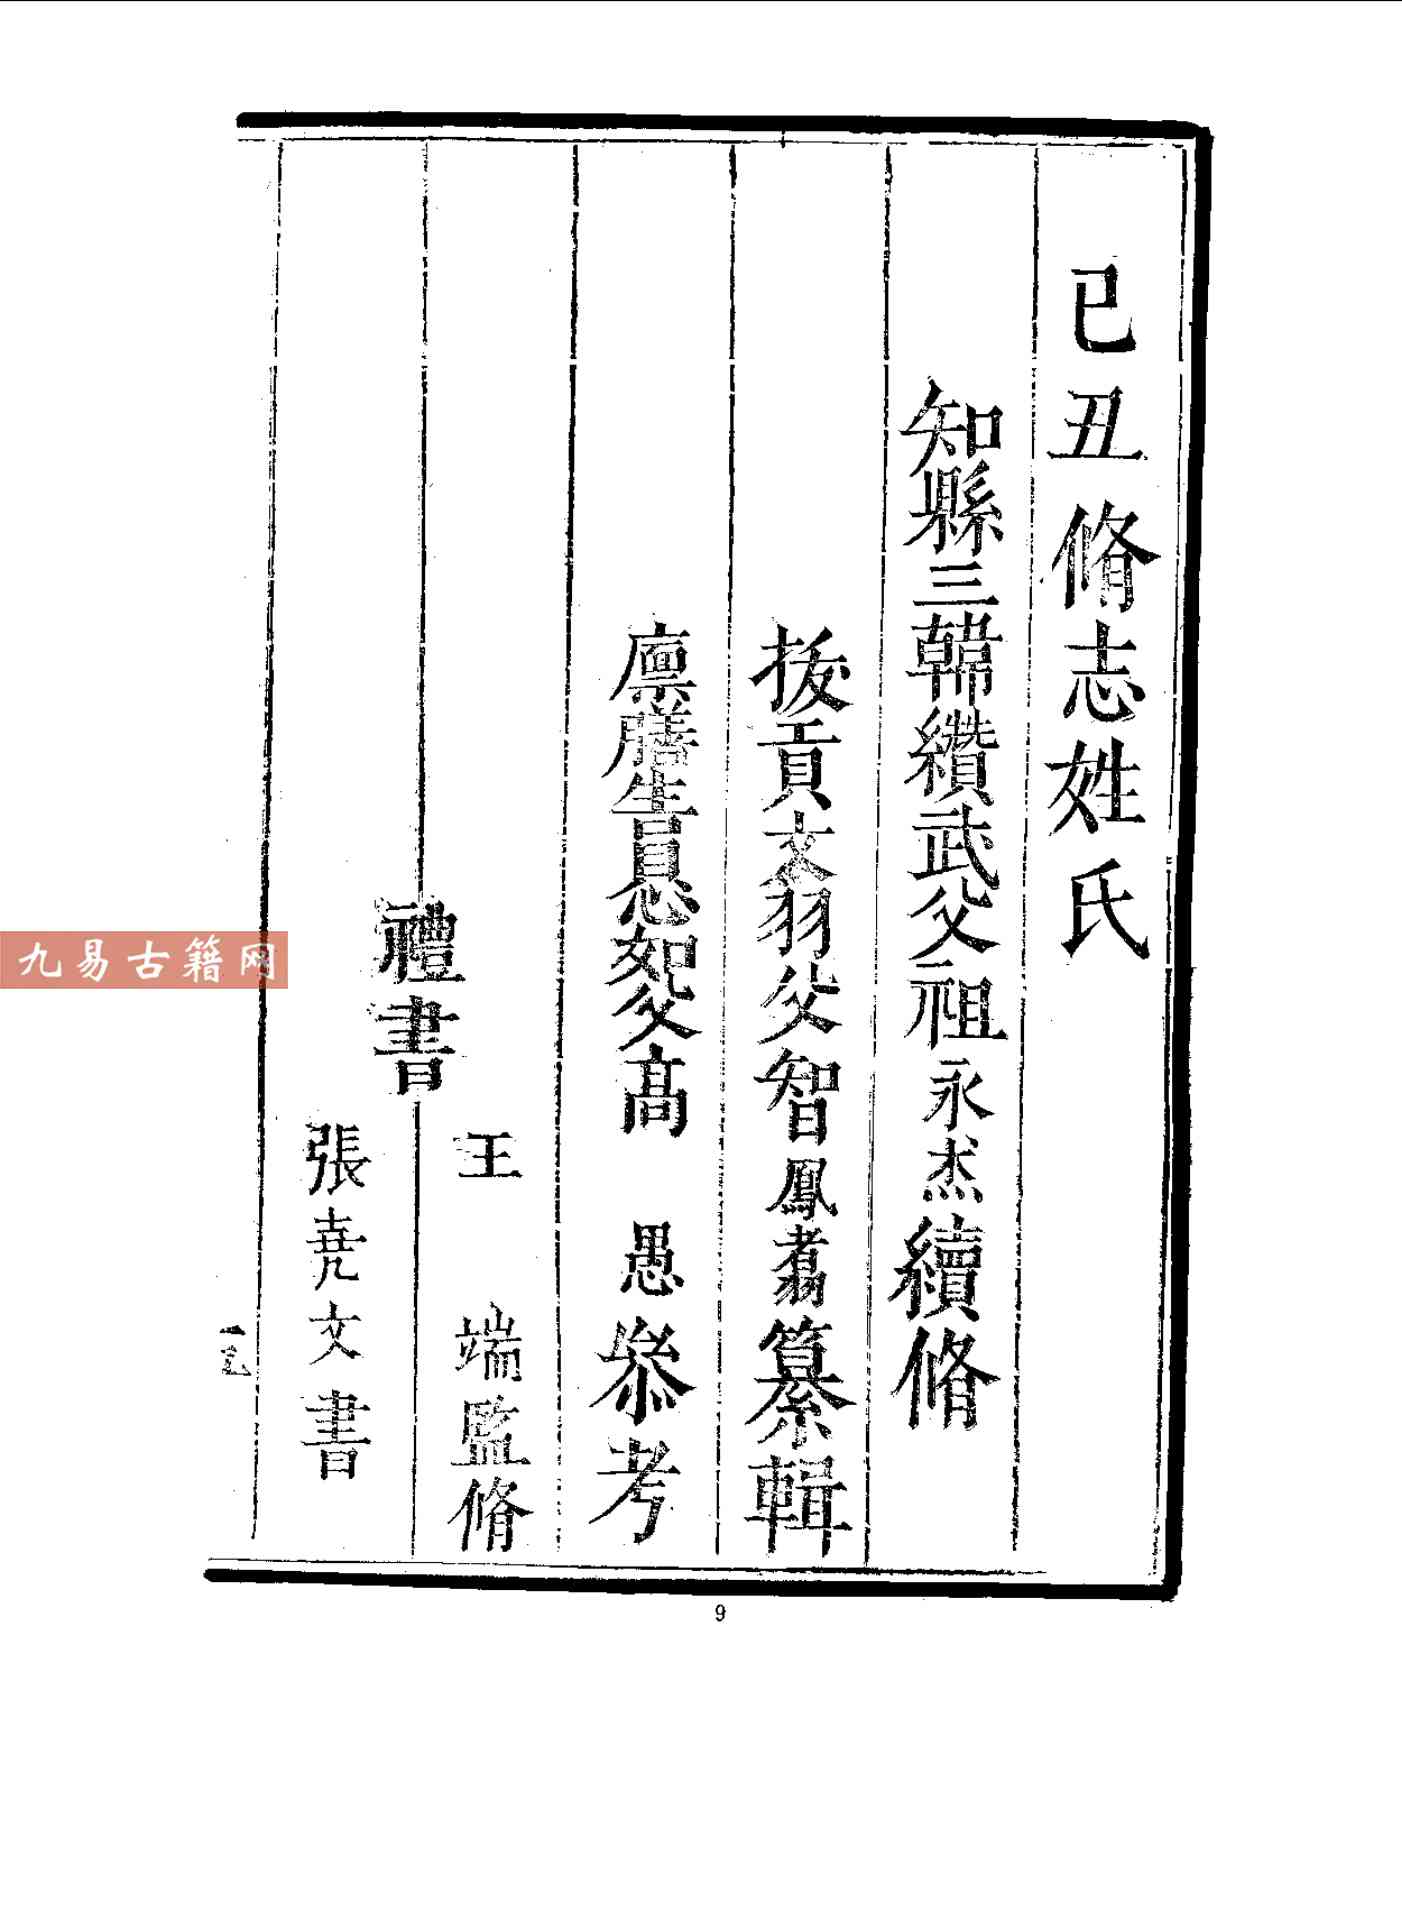 己丑脩志姓氏
知縣三韓纘武父祖永杰續脩
拔貢文羽父智鳳翥纂輯
廪膳生員慰絮父高愚叅考
禮書
王端監脩
張堯文書
九易古籍网
9